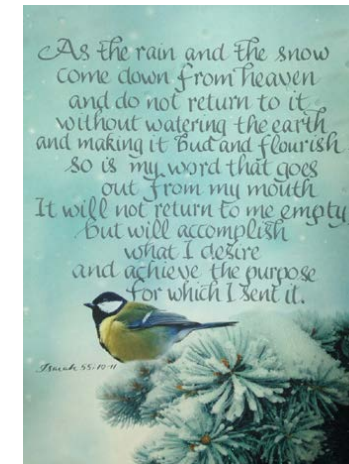 As the rain and the snow
come down from heaven
and do not return to it
without watering the earth
and making it bud and flourish
so is my word that goes
out from my mouth
It will not return to me empty
but will accomplish
what I desire
and achieve the purpose
for which I sent it.
Isaiah 55:10-11